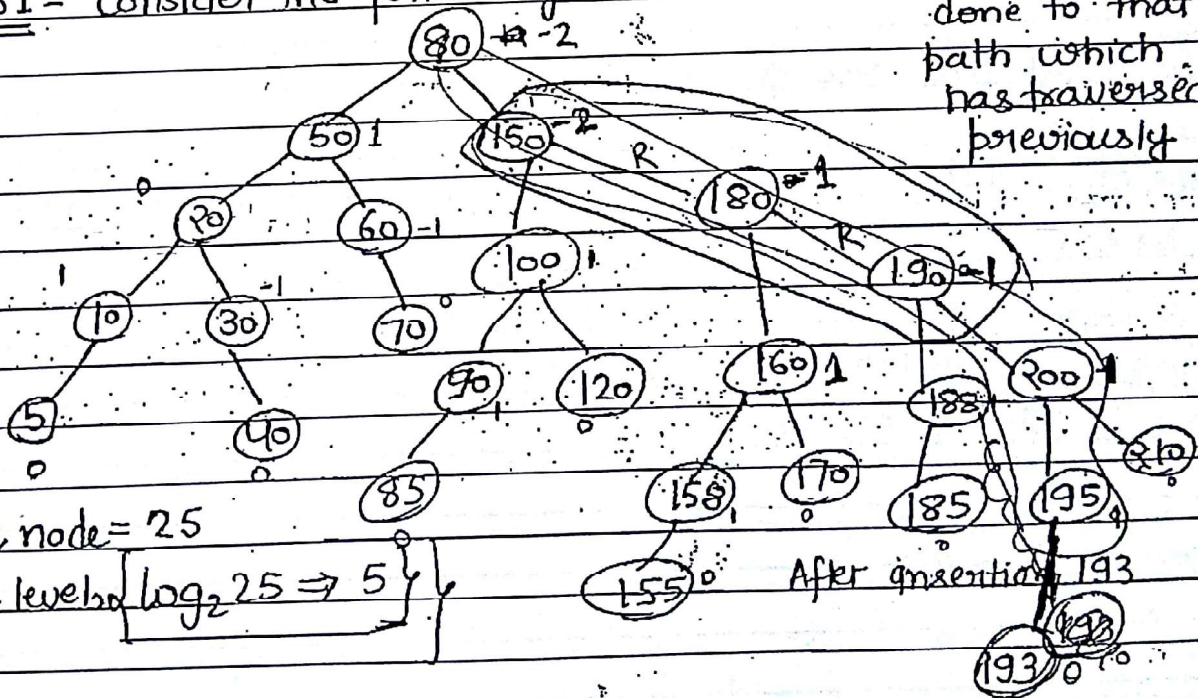 Consider the
done to that
path which
has traversed
previously
80 -2
50 1
150 -2
R
180 -1
0
20
60 -1
100 1
R
190 -1
1
10
-1
30
0
70
90 1
120
0
160 1
188 1
200 1
5
0
40
0
85
0
158 1
170
0
185
0
195 1
210
0
node = 25
level log₂ 25 ⇒ 5
155 0
After insertion 193
193 0
193 0